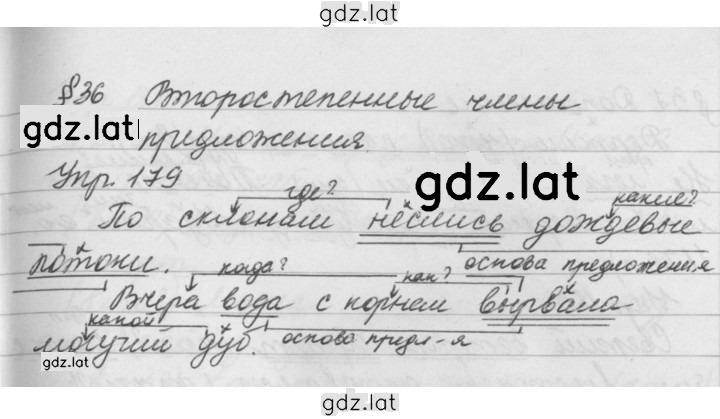 gdz.lat
§36 Второстепенные члены
gdz.lat
предложения.
Упр. 179
gdz.lat
где? какие?
По склонам неслись дождевые
потоки. когда? как? основа предложения
Вчера вода с корнем вырвала
какой основа предл-я
могучий дуб.
gdz.lat
gdz.lat
gdz.lat